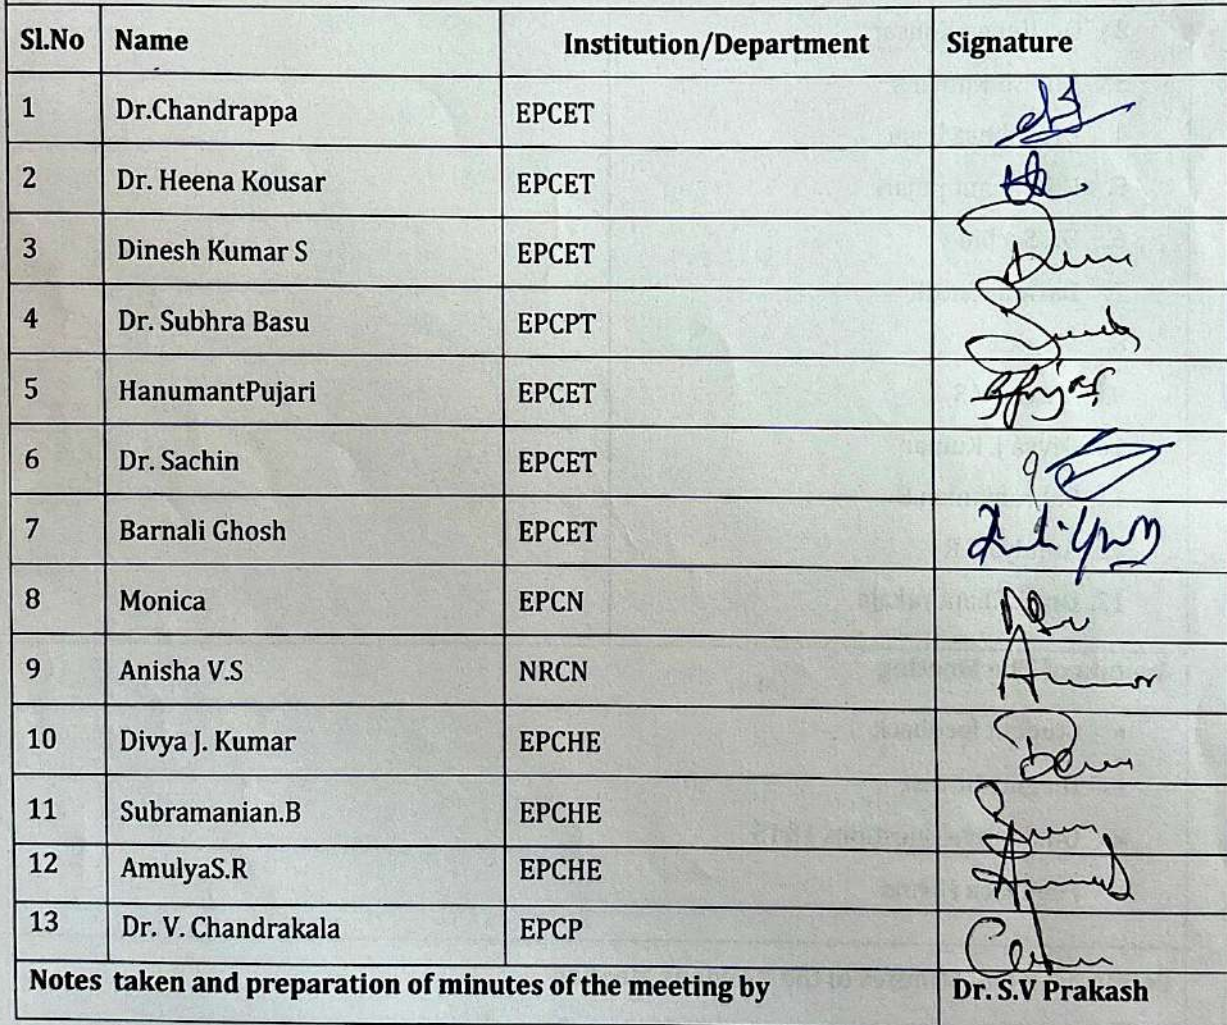 Sl.No Name Institution/Department Signature
1 Dr.Chandrappa EPCET
2 Dr. Heena Kousar EPCET
3 Dinesh Kumar S EPCET
4 Dr. Subhra Basu EPCPT
5 HanumantPujari EPCET
6 Dr. Sachin EPCET
7 Barnali Ghosh EPCET
8 Monica EPCN
9 Anisha V.S NRCN
10 Divya J. Kumar EPCHE
11 Subramanian.B EPCHE
12 AmulyaS.R EPCHE
13 Dr. V. Chandrakala EPCP
Notes taken and preparation of minutes of the meeting by Dr. S.V Prakash